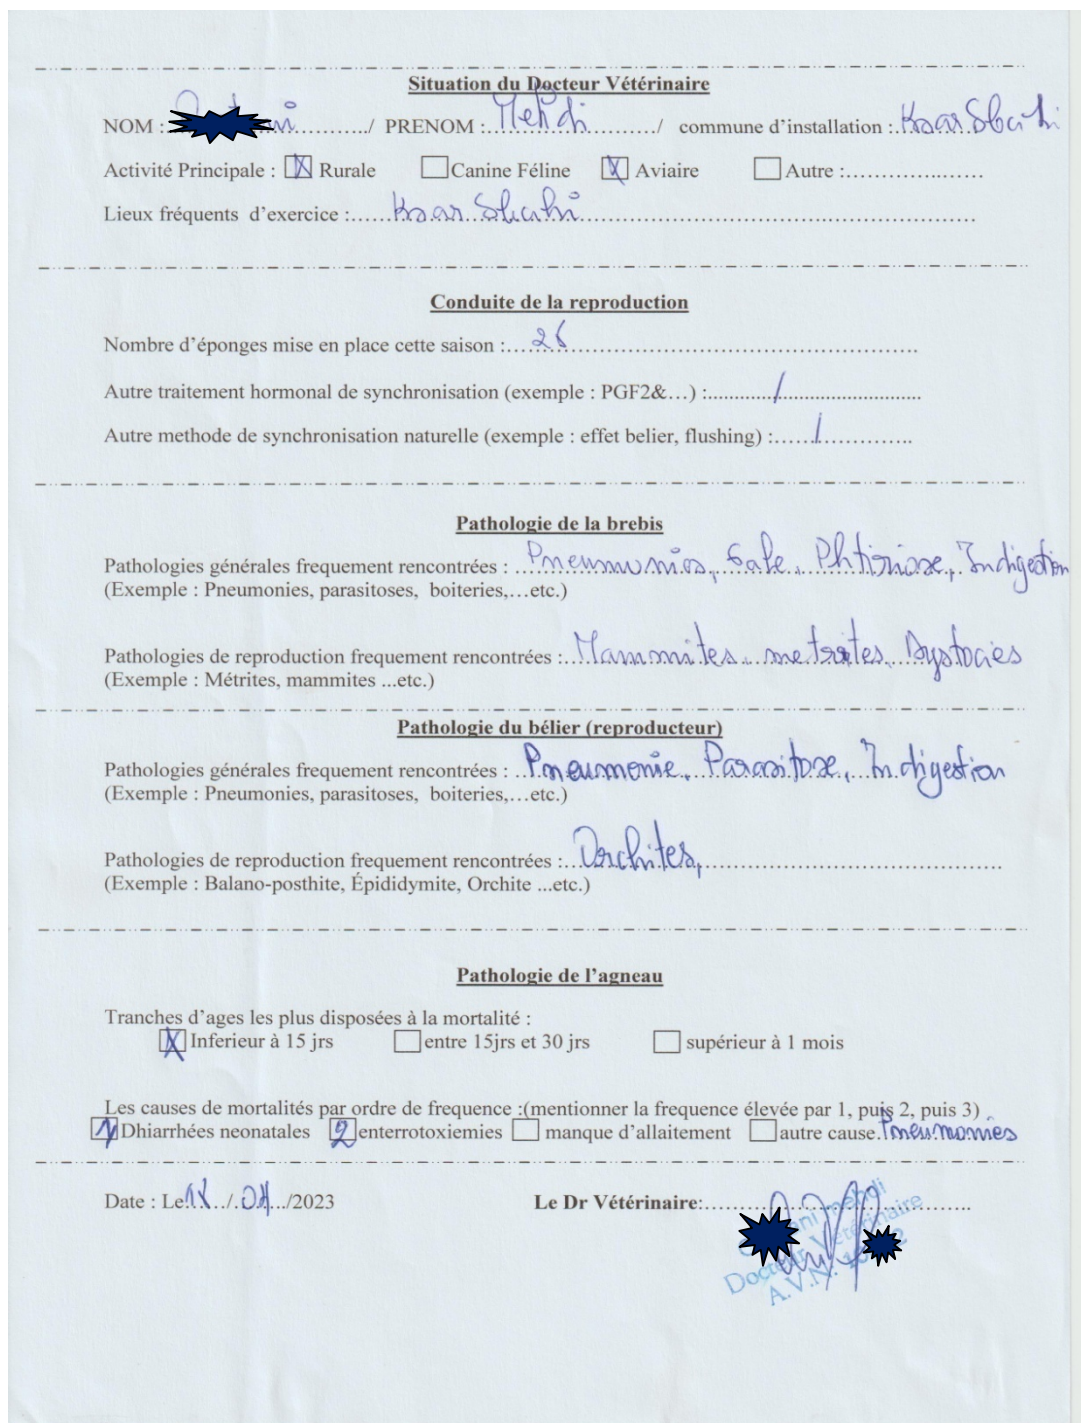 Situation du Docteur Vétérinaire
NOM : / PRENOM : Mehdi / commune d'installation : Ksar Sbahi
Activité Principale : ☒ Rurale ☐ Canine Féline ☒ Aviaire ☐ Autre :
Lieux fréquents d'exercice : Ksar Sbahi
Conduite de la reproduction
Nombre d'éponges mise en place cette saison : 26
Autre traitement hormonal de synchronisation (exemple : PGF2&...) : /
Autre methode de synchronisation naturelle (exemple : effet belier, flushing) : /
Pathologie de la brebis
Pathologies générales frequement rencontrées : Pneumonies, Gale, Phtiriose, Indigestion
(Exemple : Pneumonies, parasitoses, boiteries,...etc.)
Pathologies de reproduction frequement rencontrées : Mammites, metrites, Dystocies
(Exemple : Métrites, mammites ...etc.)
Pathologie du bélier (reproducteur)
Pathologies générales frequement rencontrées : Pneumonie, Parasitose, Indigestion
(Exemple : Pneumonies, parasitoses, boiteries,...etc.)
Pathologies de reproduction frequement rencontrées : Orchites,
(Exemple : Balano-posthite, Épididymite, Orchite ...etc.)
Pathologie de l'agneau
Tranches d'ages les plus disposées à la mortalité :
☒ Inferieur à 15 jrs ☐ entre 15jrs et 30 jrs ☐ supérieur à 1 mois
Les causes de mortalités par ordre de frequence :(mentionner la frequence élevée par 1, puis 2, puis 3)
1 Dhiarrhées neonatales 2 enterrotoxiemies ☐ manque d'allaitement ☐ autre cause. Pneumonies
Date : Le / /2023 Le Dr Vétérinaire:
mehdi
Docteur Vétérinaire
A.V.N.